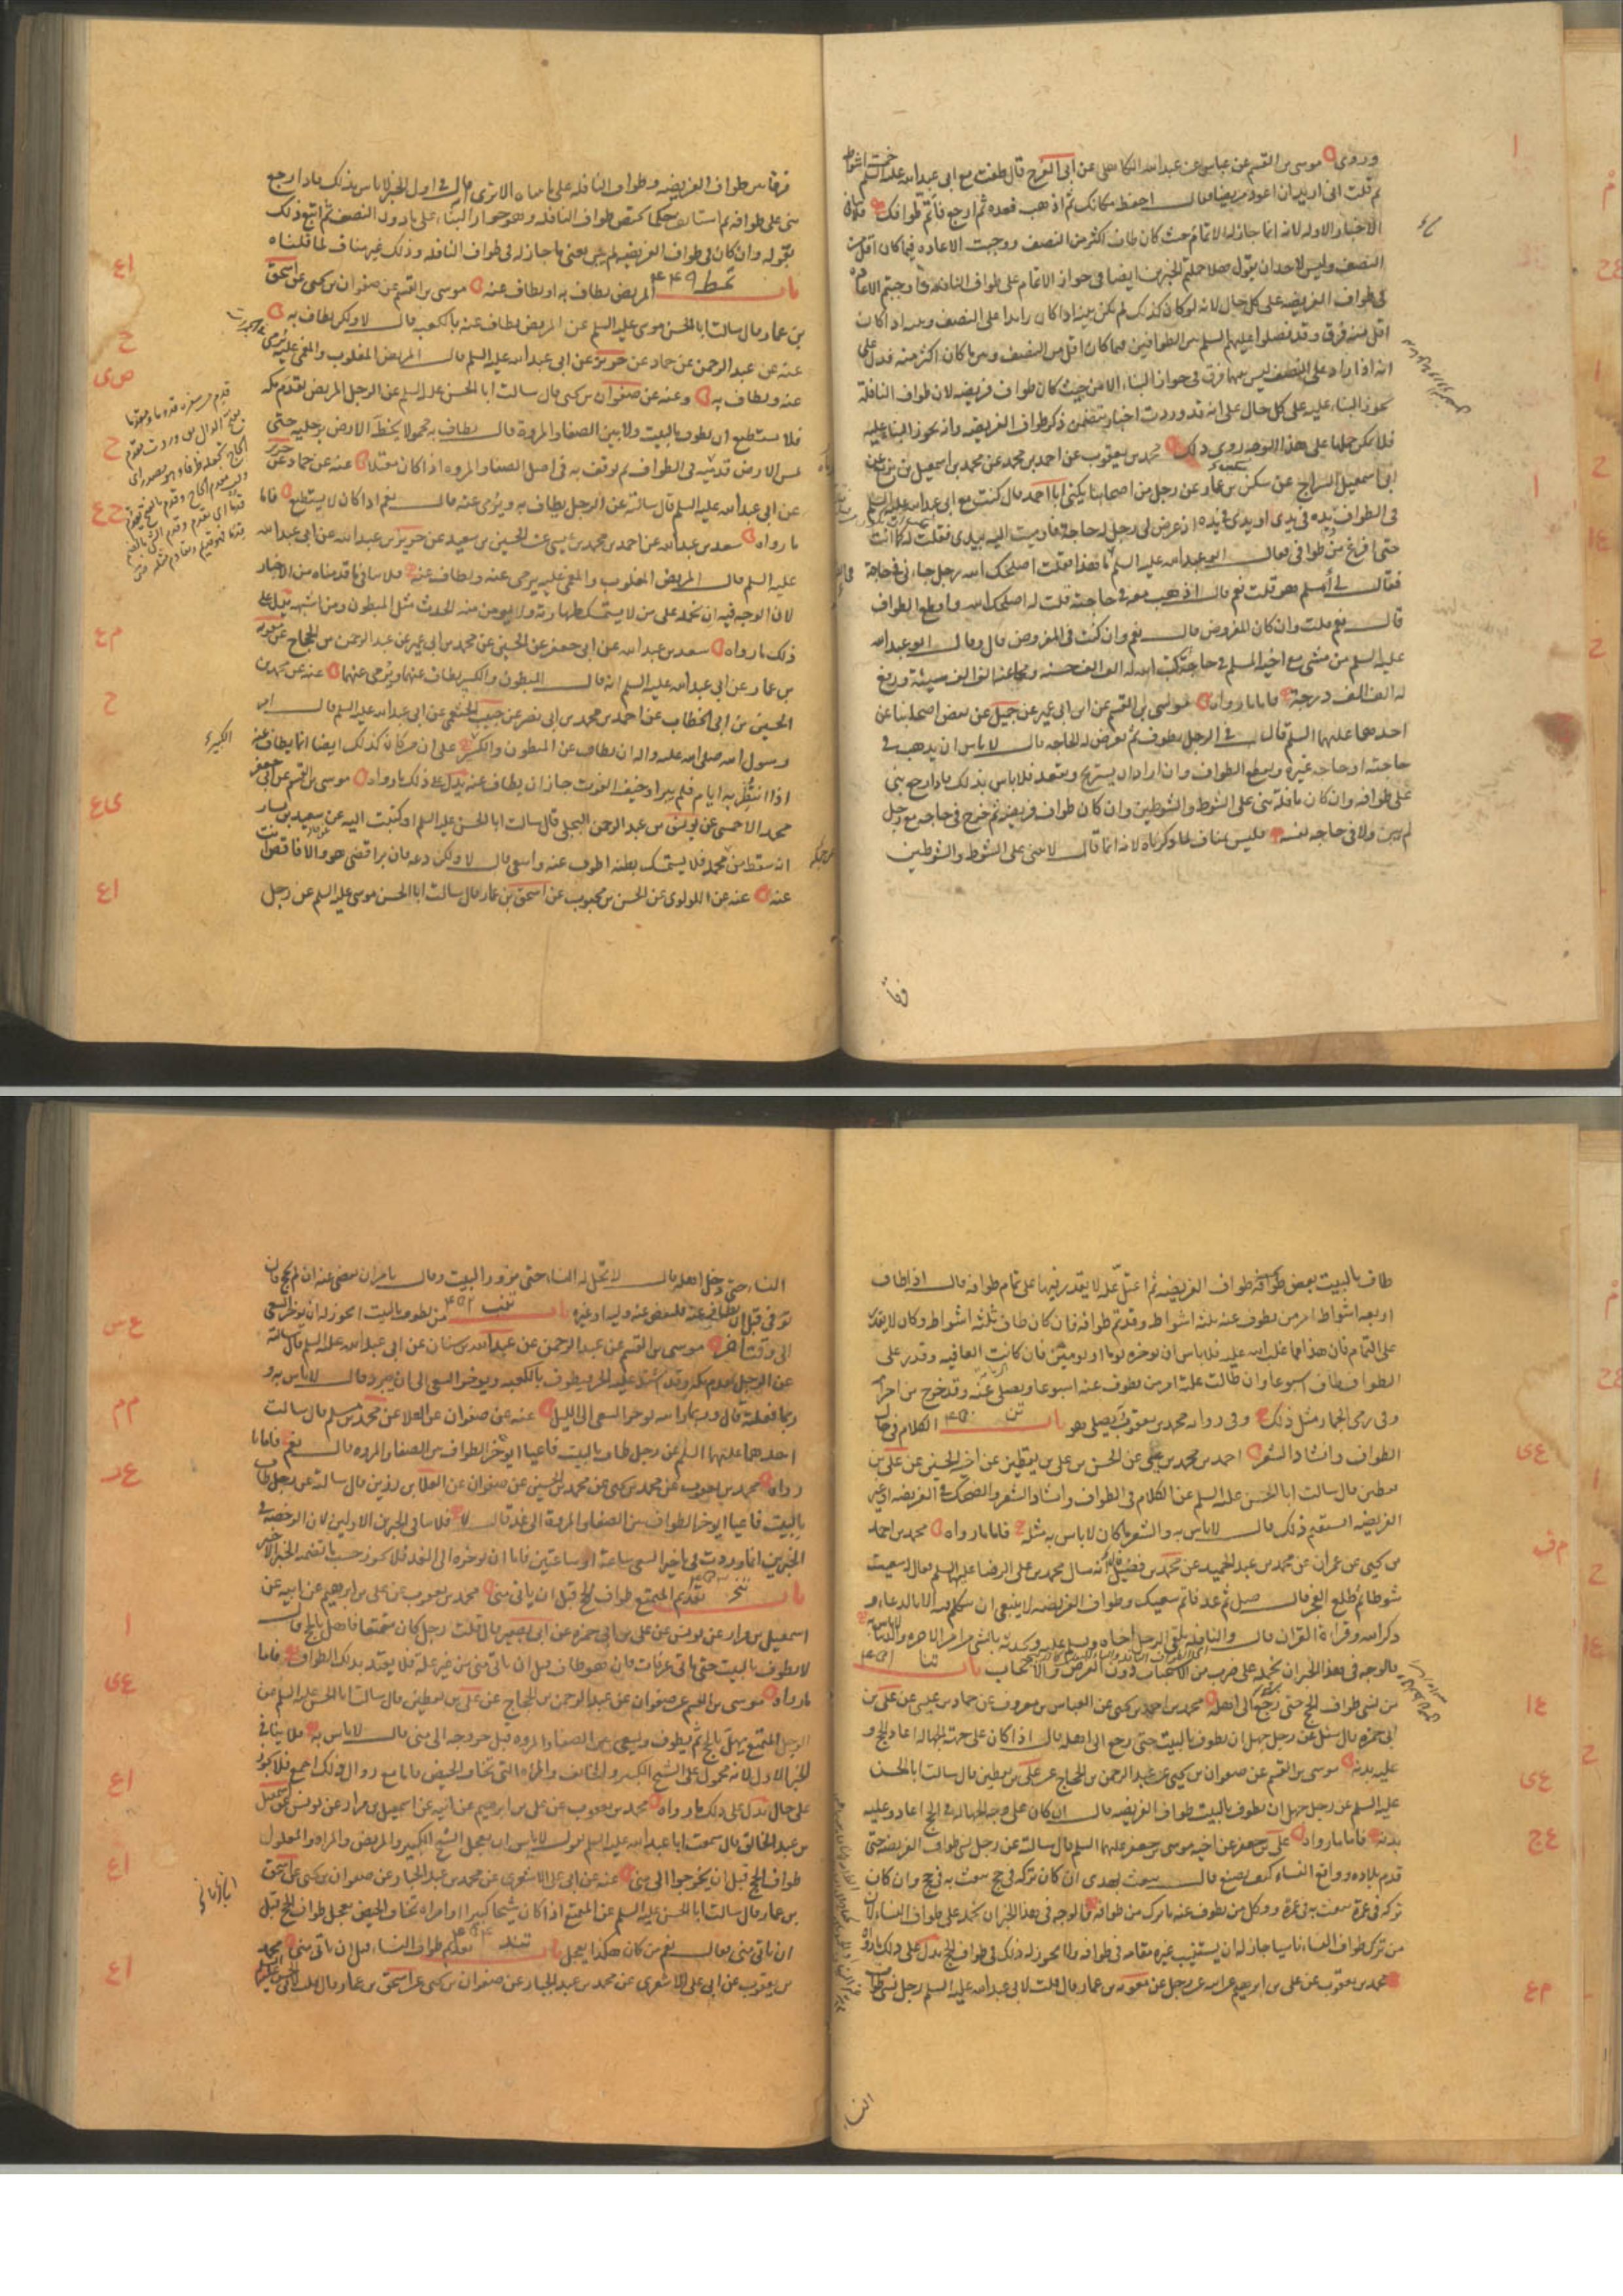 وروى موسى بن القسم عن عباس عن عبدالله الكاهلى عن ابى الفرج قال طفت مع ابى عبدالله عليه السلم خمسة اشواط
ثم قلت انى اريد ان اعود مريضا فقال احفظ مكانك ثم اذهب فعده ثم ارجع فاتم طوافك فلا ينافى
الاخبار الاوله لانه انما جاز له الاتمام حيث كان طاف اكثر من النصف ووجبت الاعاده فيما كان اقل من
النصف وليس لاحد ان يقول هلا حملتم الخبرين ايضا فى جواز الاتمام على طواف النافله واوجبتم الاعاده
فى طواف الفريضه على كل حال لانه لو كان كذلك لم يكن بينه اذا كان زايدا على النصف وبينه اذا كان
اقل منه فرق وقد فصلوا عليهم السلم بين الطوافين فيما كان اقل من النصف وبين ما كان اكثر منه فدل على
انه اذا زاد على النصف ليس بينهما فرق فى جواز البناء الا من حيث كان طواف فريضه لان طواف النافلة
يجوز البناء عليه على كل حال على انه قد وردت اخبار يتضمن ذكر طواف الفريضه وانه يجوز البناء عليه
فلا يمكن حملها على هذا الوجه روى ذلك محمد بن يعقوب عن احمد بن محمد عن محمد بن اسمعيل بن بزيع عن
ابى اسمعيل السراج عن سكين بن عمار عن رجل من اصحابنا يكنى ابا احمد قال كنت مع ابى عبدالله عليه السلم
فى الطواف يده فى يدى او يدى فى يده اذ عرض لى رجل له حاجة فاومت اليه بيدى فقلت له كما انت
حتى افرغ من طوافى فقال ابو عبدالله عليه السلم ما هذا فقلت اصلحك الله رجل جاءنى فى حاجة
فقال لى أمسلم هو قلت نعم قال اذهب معه فى حاجته قلت له اصلحك الله واقطع الطواف
قال نعم قلت وان كان المفروض قال نعم وان كنت فى المفروض قال وقال ابو عبدالله
عليه السلم من مشى مع اخيه المسلم فى حاجة كتب الله له الف الف حسنه ومحا عنه الف الف سيئة ورفع
له الف الف درجة فاما ما رواه موسى بن القسم عن ابن ابى عمير عن جميل عن بعض اصحابنا عن
احدهما عليهما السلم قال فى الرجل يطوف ثم تعرض له الحاجه قال لا باس ان يذهب فى
حاجته او حاجه غيره ويقطع الطواف وان اراد ان يستريح ويقعد فلا باس بذلك فاذا رجع بنى
على طوافه وان كان نافلة بنى على الشوط والشوطين وان كان طواف فريضه ثم خرج فى حاجه مع رجل
لم يبن ولا فى حاجه نفسه فليس بمناف لما ذكرناه لانه انما قال لا يبنى على الشوط والشوطين
فرقا بين طواف الفريضه وطواف النافله على ما بيناه الا ترى قال فى اول الخبر لا باس بذلك فاذا رجع
بنى على طوافه ثم استانف حكما يختص طواف النافله وهو جواز البناء على ما دون النصف ثم اتبع ذلك
بقوله وان كان فى طواف الفريضه لم يبن يعنى ما جاز له فى طواف النافله وذلك غير مناف لما قلناه
باب تمط ۴۴۹ المريض يطاف به او يطاف عنه موسى بن القسم عن صفوان بن يحيى عن اسحق
بن عمار قال سالت ابا الحسن موسى عليه السلم عن المريض يطاف عنه بالكعبه قال لا ولكن يطاف به
عنه عن عبد الرحمن عن حماد عن حريز عن ابى عبدالله عليه السلم قال المريض المغلوب والمغمى عليه يرمى
عنه ويطاف به وعنه عن صفوان بن يحيى قال سالت ابا الحسن عليه السلم عن الرجل المريض يقدم مكه
فلا يستطيع ان يطوف بالبيت ولا بين الصفا والمروة قال يطاف به محمولا يخط الارض برجليه حتى
تمس الارض قدميه فى الطواف ثم يوقف به فى اصل الصفا والمروه اذا كان معتلا عنه عن حماد عن حريز
عن ابى عبدالله عليه السلم قال سالته عن الرجل يطاف به ويرمى عنه قال نعم اذا كان لا يستطيع فاما
ما رواه سعد بن عبدالله عن احمد بن محمد بن عيسى عن الحسين بن سعيد عن حريز بن عبدالله عن ابى عبدالله
عليه السلم قال المريض المغلوب والمغمى عليه يرمى عنه ويطاف عنه فلا ينافى ما قدمناه من الاخبار
لان الوجه فيه ان نحمله على من لا يستمسك طهارته ولا يومن منه الحدث مثل المبطون ومن اشبهه يدل على
ذلك ما رواه سعد بن عبدالله عن ابى جعفر عن الحسين عن محمد بن ابى عمير عن عبد الرحمن بن الحجاج عن معويه
بن عمار عن ابى عبدالله عليه السلم انه قال المبطون والكسير يطاف عنهما ويرمى عنهما عنه عن محمد بن
الحسين بن ابى الخطاب عن احمد بن محمد بن ابى نصر عن حبيب الخثعمى عن ابى عبدالله عليه السلم قال امر
رسول الله صلى الله عليه واله ان يطاف عن المبطون والكسير على ان من كان كذلك ايضا انما يطاف عنه
اذا انتظر به ايام فلم يبرا وخيف الفوت جاز ان يطاف عنه يدل على ذلك ما رواه موسى بن القسم عن ابى جعفر
محمد الاحمسى عن يونس بن عبد الرحمن البجلى قال سالت ابا الحسن عليه السلم او كتبت اليه عن سعيد بن يسار
انه سقط من محمله فلا يستمسك بطنه اطوف عنه واسعى قال لا ولكن دعه فان برا قضى هو والا فاقض انت
عنه عنه عن اللولوى عن الحسن بن محبوب عن اسحق بن عمار قال سالت ابا الحسن موسى عليه السلم عن رجل
طاف بالبيت بعض طوافه طواف الفريضه ثم اعتل علة لا يقدر فيها على تمام طوافه قال اذا طاف
اربعه اشواط امر من يطوف عنه ثلثة اشواط وقد تم طوافه فان كان طاف ثلثة اشواط وكان لا يقدر
على التمام فان هذا مما غلب الله عليه فلا باس ان يوخره يوما او يومين فان كانت العافيه وقدر على
الطواف طاف اسبوعا وان طالت علته امر من يطوف عنه اسبوعا ويصلى عنه وقد خرج من احرامه
وفى رمى الجمار مثل ذلك وفى روايه محمد بن يعقوب يصلى هو باب تن ۴۵۰ الكلام فى حال
الطواف وانشاد الشعر احمد بن محمد بن عيسى عن الحسن بن على بن يقطين عن اخيه الحسين عن على بن
يقطين قال سالت ابا الحسن عليه السلم عن الكلام فى الطواف وانشاد الشعر والضحك فى الفريضه او غير
الفريضه ايستقيم ذلك قال لا باس به والشعر ما كان لا باس به مثله فاما ما رواه محمد بن احمد
بن يحيى عن عمران عن محمد بن عبد الحميد عن محمد بن فضيل انه سال محمد بن على الرضا عليهم السلم فقال له سعيت
شوطا ثم طلع الفجر قال صل ثم عد فاتم سعيك وطواف الفريضه لا ينبغى ان يتكلم فيه الا بالدعاء و
ذكر الله وقراءة القرآن قال والنافله يلقى الرجل اخاه ويسلم عليه ويحدثه بالشئ من امر الاخره والدنيا لا باس به
فالوجه فى هذا الخبر ان نحمله على ضرب من الاستحباب دون الفرض والايجاب باب تنا ۴۵۱
من نسى طواف الحج حتى رجع الى اهله محمد بن احمد بن يحيى عن العباس بن معروف عن حماد بن عيسى عن على بن
ابى حمزه قال سئل عن رجل جهل ان يطوف بالبيت حتى رجع الى اهله قال اذا كان على جهة الجهاله اعاد الحج و
عليه بدنة موسى بن القسم عن صفوان بن يحيى عن عبد الرحمن بن الحجاج عن على بن يقطين قال سالت ابا الحسن
عليه السلم عن رجل جهل ان يطوف بالبيت طواف الفريضه قال ان كان على وجه الجهاله فى الحج اعاد وعليه
بدنة فاما ما رواه على بن جعفر عن اخيه موسى بن جعفر عليهما السلم قال سالته عن رجل نسى طواف الفريضه حتى
قدم بلاده وواقع النساء كيف يصنع قال يبعث بهدى ان كان تركه فى حج يبعث به فى حج وان كان
تركه فى عمرة يبعث به فى عمرة ووكل من يطوف عنه ما ترك من طوافه فالوجه فى هذا الخبر ان نحمله على طواف النساء لان
من ترك طواف النساء ناسيا جاز له ان يستنيب غيره مقامه فى طوافه ولا يجوز له ذلك فى طواف الحج يدل على ذلك ما رواه
محمد بن يعقوب عن على بن ابرهيم عن ابيه عن رجل عن معويه بن عمار قال قلت لابى عبدالله عليه السلم رجل نسى طواف
النساء حتى دخل اهله قال لا تحل له النساء حتى يزور البيت وقال يامر ان يقضى عنه ان لم يحج فان
توفى قبل ان يطاف عنه فليقض عنه وليه او غيره باب تنب ۴۵۲ من يطوف بالبيت ايجوز له ان يوخر السعى
الى وقت اخر موسى بن القسم عن عبد الرحمن عن عبدالله بن سنان عن ابى عبدالله عليه السلم قال سالته
عن الرجل يقدم مكه وقد اشتد عليه الحر فيطوف بالكعبه ويوخر السعى الى ان يبرد فقال لا باس به و
ربما فعلته قال وربما رايته يوخر السعى الى الليل عنه عن صفوان عن العلا عن محمد بن مسلم قال سالت
احدهما عليهما السلم عن رجل طاف بالبيت فاعيا ايوخر الطواف بين الصفا والمروه قال نعم فاما ما
رواه محمد بن يعقوب عن محمد بن يحيى عن محمد بن الحسين عن صفوان عن العلا بن رزين قال سالته عن رجل طاف
بالبيت فاعيا ايوخر الطواف بين الصفا والمروة الى غد قال لا فلا ينافى الخبرين الاولين لان الرخصه فى
الخبرين انما وردت فى تاخير السعى ساعة او ساعتين فاما ان يوخره الى الغد فلا يجوز حسب ما تضمنه الخبر الاخير
باب تنج ۴۵۳ تقديم المتمتع طواف الحج قبل ان ياتى منى محمد بن يعقوب عن على بن ابرهيم عن ابيه عن
اسمعيل بن مرار عن يونس عن على بن ابى حمزه عن ابى بصير قال قلت رجل كان متمتعا فاهل بالحج قال
لا يطوف بالبيت حتى ياتى عرفات فان هو طاف قبل ان ياتى منى من غير علة فلا يعتد بذلك الطواف فاما
ما رواه موسى بن القسم عن صفوان عن عبد الرحمن بن الحجاج عن على بن يقطين قال سالت ابا الحسن عليه السلم عن
الرجل المتمتع يهل بالحج ثم يطوف ويسعى بين الصفا والمروه قبل خروجه الى منى قال لا باس به فلا ينافى
الخبر الاول لانه محمول على الشيخ الكبير والخائف والمراه التى تخاف الحيض فاما مع زوال ذلك اجمع فلا يجوز
على حال يدل على ذلك ما رواه محمد بن يعقوب عن على بن ابرهيم عن ابيه عن اسمعيل بن مرار عن يونس عن اسمعيل
بن عبد الخالق قال سمعت ابا عبدالله عليه السلم يقول لا باس ان يعجل الشيخ الكبير والمريض والمراه والمعلول
طواف الحج قبل ان يخرجوا الى منى عنه عن ابى على الاشعرى عن محمد بن عبد الجبار عن صفوان بن يحيى عن اسحق
بن عمار قال سالت ابا الحسن عليه السلم عن المتمتع اذا كان شيخا كبيرا او امراة تخاف الحيض يعجل طواف الحج قبل
ان ياتى منى فقال نعم من كان هكذا يعجل باب تند ۴۵۴ تقديم طواف النساء قبل ان ياتى منى محمد
بن يعقوب عن ابى على الاشعرى عن محمد بن عبد الجبار عن صفوان بن يحيى عن اسحق بن عمار قال قلت لابى الحسن عليه السلم